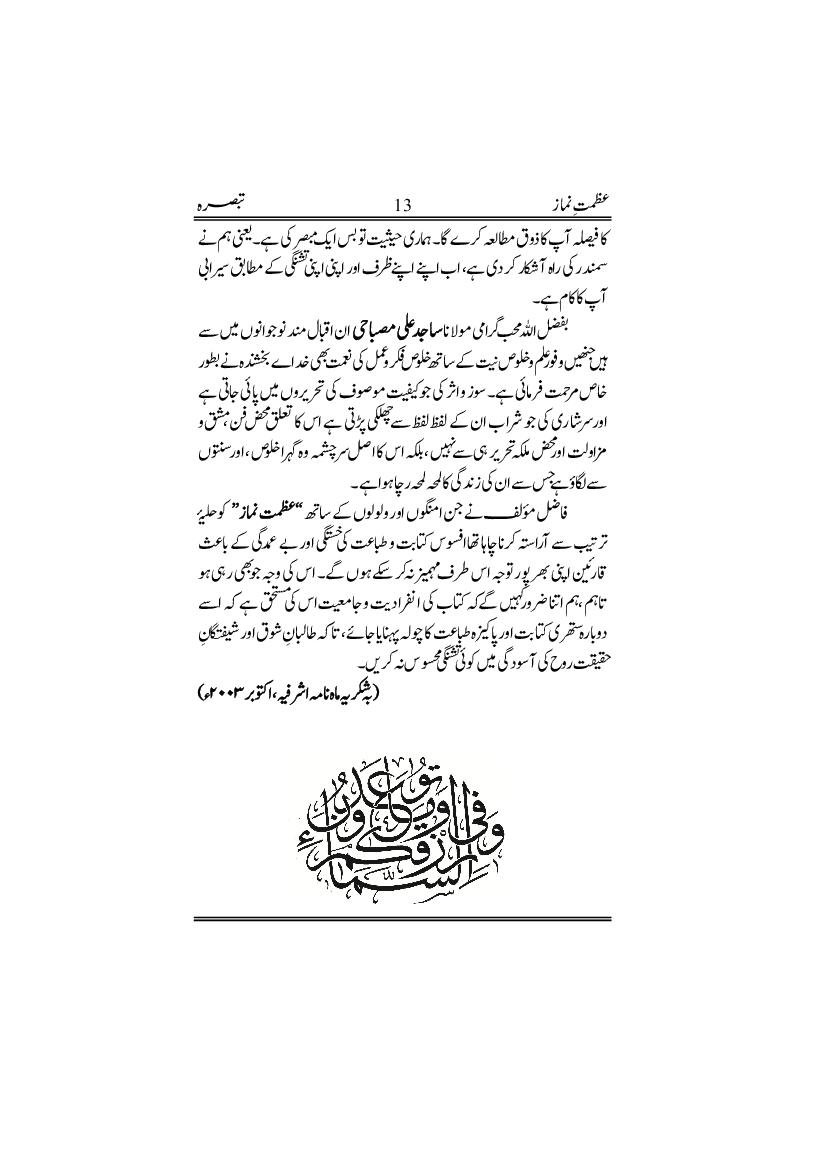 عظمتِ نماز 13 تبصرہ
کا فیصلہ آپ کا ذوق مطالعہ کرے گا۔ ہماری حیثیت تو بس ایک مبصر کی ہے۔ یعنی ہم نے
سمندر کی راہ آشکار کر دی ہے، اب اپنے اپنے ظرف اور اپنی اپنی تشنگی کے مطابق سیرابی
آپ کا کام ہے۔
بفضل اللہ محب گرامی مولانا ساجد علی مصباحی ان اقبال مند نوجوانوں میں سے
ہیں جنھیں وفور علم و خلوص نیت کے ساتھ خلوص فکر و عمل کی نعمت بھی خداے بخشندہ نے بطور
خاص مرحمت فرمائی ہے۔ سوز و اثر کی جو کیفیت موصوف کی تحریروں میں پائی جاتی ہے
اور سرشاری کی جو شراب ان کے لفظ لفظ سے چھلکی پڑتی ہے اس کا تعلق محض فن، مشق و
مزاولت اور محض ملکہ تحریر ہی سے نہیں، بلکہ اس کا اصل سرچشمہ وہ گہرا خلوص، اور سنتوں
سے لگاؤ ہے جس سے ان کی زندگی کا لمحہ لمحہ رچا ہوا ہے۔
فاضل مؤلف نے جن امنگوں اور ولولوں کے ساتھ “عظمت نماز” کو حلیۂ
ترتیب سے آراستہ کرنا چاہا تھا افسوس کتابت و طباعت کی خستگی اور بے عمدگی کے باعث
قارئین اپنی بھر پور توجہ اس طرف مہمیز نہ کر سکے ہوں گے۔ اس کی وجہ جو بھی رہی ہو
تاہم، ہم اتنا ضرور کہیں گے کہ کتاب کی انفرادیت و جامعیت اس کی مستحق ہے کہ اسے
دوبارہ ستھری کتابت اور پاکیزہ طباعت کا چولہ پہنایا جائے، تاکہ طالبانِ شوق اور شیفتگانِ
حقیقت روح کی آسودگی میں کوئی تشنگی محسوس نہ کریں۔
(بہ شکریہ ماہ نامہ اشرفیہ، اکتوبر ۲۰۰۳ء)
وفي السماء رزقكم وما توعدون